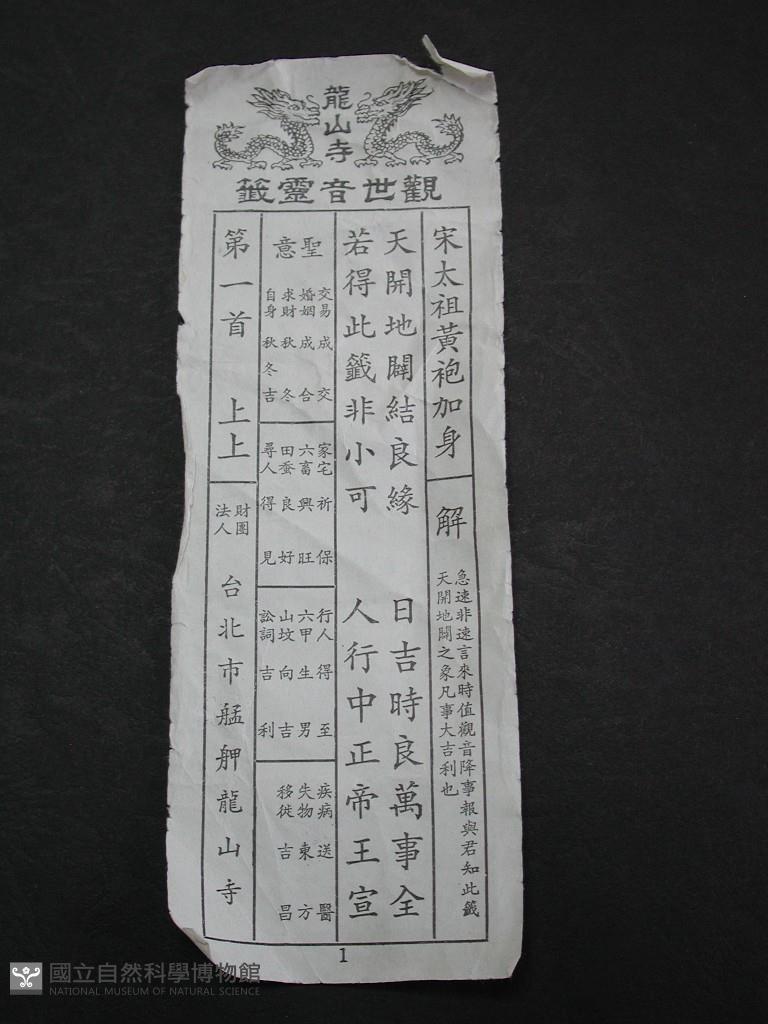 龍山寺
觀世音靈籤
宋太祖黃袍加身
解
急速非速言來時值觀音降事報與君知此籤
天開地闢之象凡事大吉利也
天開地闢結良緣
日吉時良萬事全
若得此籤非小可
人行中正帝王宣
聖意
交易成交
婚姻成合
求財秋冬
自身秋冬吉
家宅祈保
六畜興旺
田蚕良好
尋人得見
行人得至
六甲生男
山坟向吉
訟詞吉利
疾病送醫
失物東方
移徙吉昌
第一首
上上
財團
法人
台北市艋舺龍山寺
1
國立自然科學博物館
NATIONAL MUSEUM OF NATURAL SCIENCE